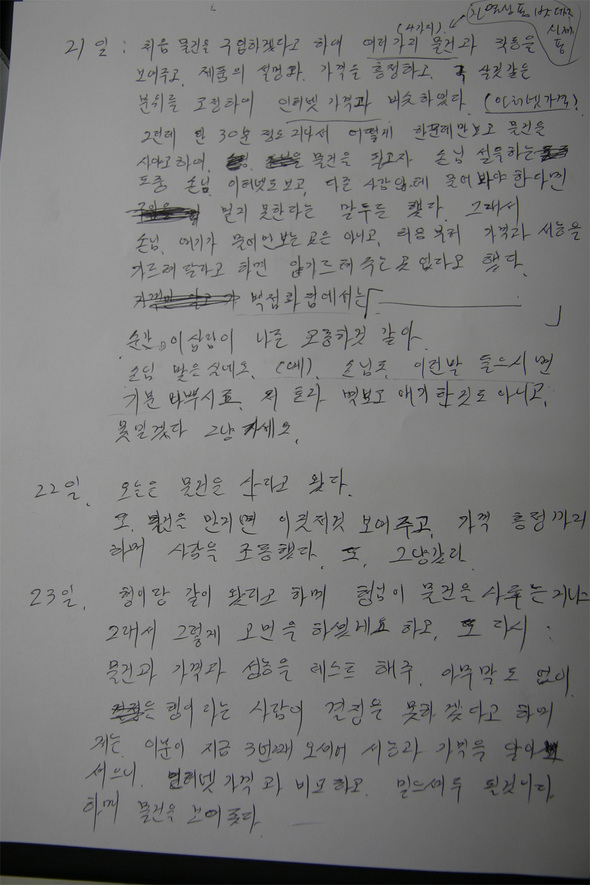 (4가지).
21일 : 처음 물건을 구입하겠다고 하여 여러가지 물건과 작동을
보여주고, 제품의 설명과 가격을 흥정하고,
분위를 조장하여 인터넷 가격과 비슷하였다. (인터넷가격)
그런데 한 30분 정도 지나서 어떻게 한군데만 보고 물건을
사냐고하여, 물건을 팔고자 손님 설득하는
도중 손님, 인터넷도보고, 다른 사람한테 물어 봐야 한다면
믿지 못한다는 말투를 했다. 그래서
손님, 여기가 물어만 보는 곳은 아니고, 처음부터 가격과 성능을
가르쳐 달라고 하면 안가르쳐 주는 곳 없다고 했다.
백점화점에서는
순간, 이 사람이 나를 조롱하것 같아.
손님 많은 싯네요. (예). 손님도, 이런말 들으시면
기분 나쁘시죠. 저 또한 몇보고 얘기 한것도 아니고,
못믿겠다 그냥 가세요.
22일, 오늘은 물건을 사러고 왔다.
또, 물건을 만지면 이것저것 보여주고, 가격 흥정까지
하며 사람을 조롱했다. 또, 그냥갔다.
23일, 형이랑 같이 왔다고 하며 형님이 물건을 사주는거냐
그래서 그렇게 고민을 하셨네요 하고, 또 다시 :
물건과 가격과 성능을 테스트 해주, 아무말도 없이,
형이라는 사람이 결정을 못하겠다고 하며
저는, 이분이 지금 3번째 오셔어 성능과 가격을 알아
셨으니, 인터넷 가격과 비교하고, 믿으셔두 될겁니다
하며 물건을 보여줬다.